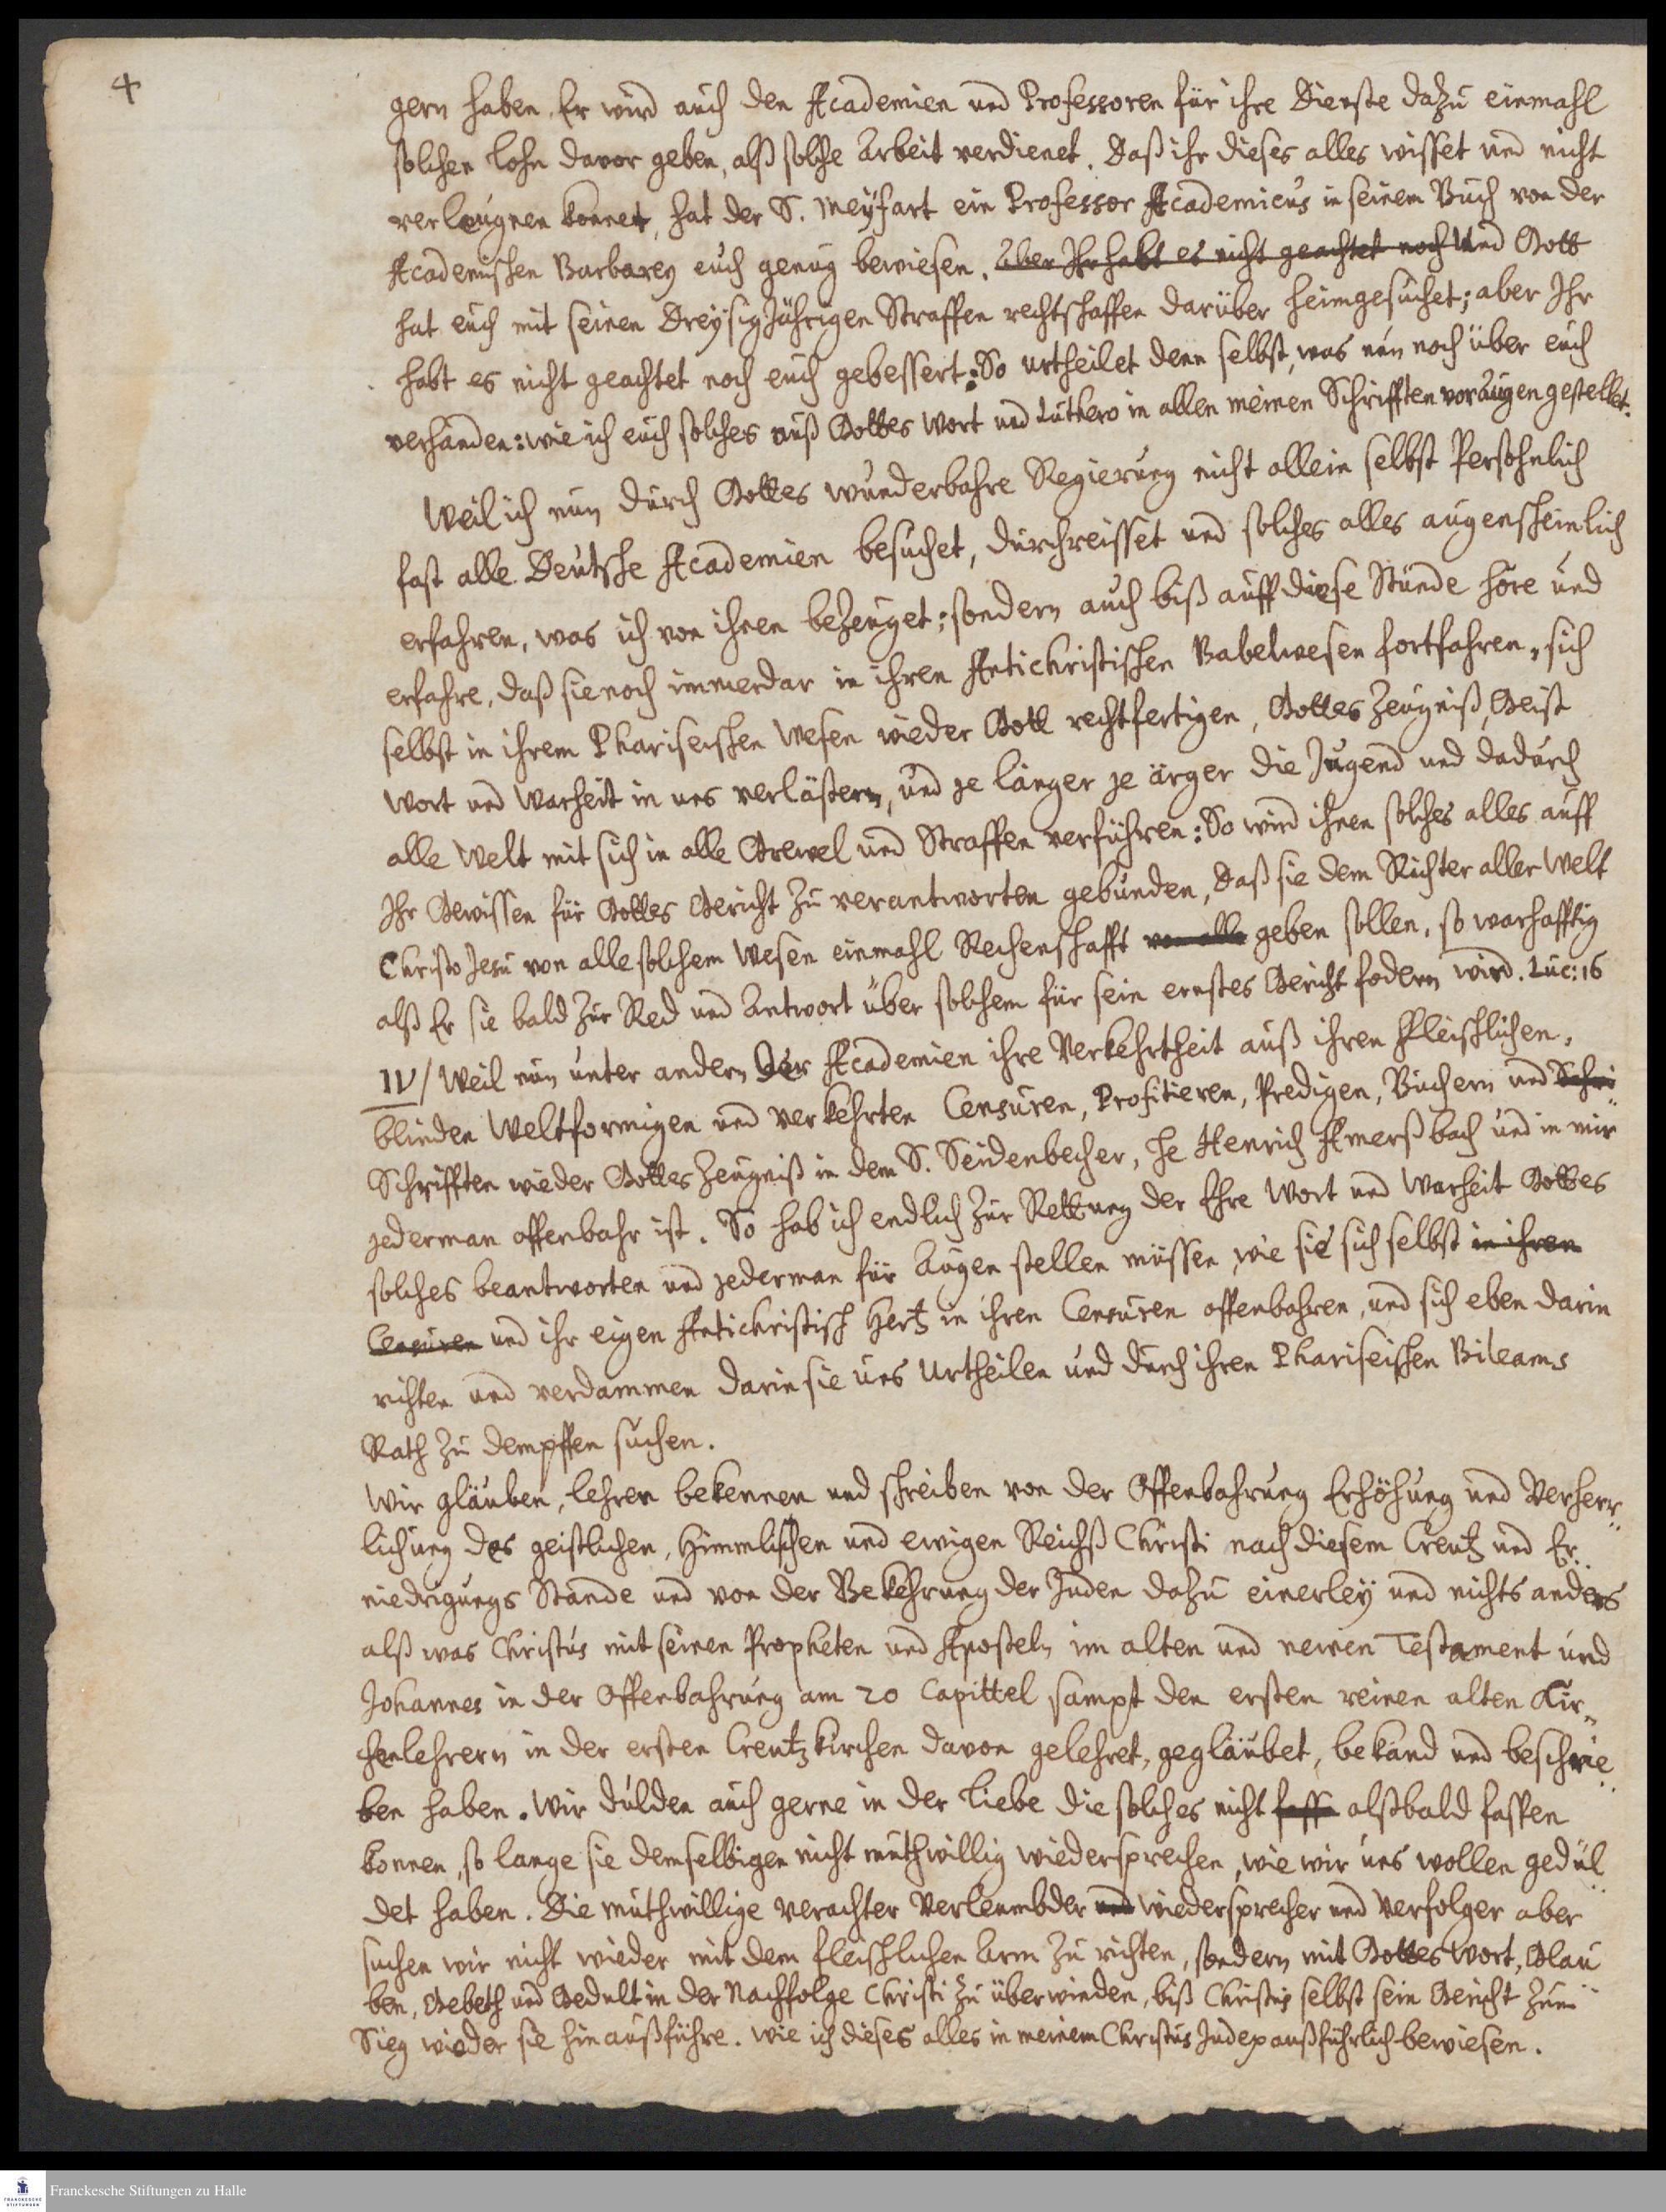 4
gern haben. Er wird auch den Academien und Professoren für ihre Dienste dazu einmahl
solchen Lohn davor geben, alß solche Arbeit verdienet. Daß ihr dieses alles wisset und nicht
verleugnen konnet, hat der S. Meÿfart ein Professor Academicus in seinem Buch von der
Academischen Barbarey euch genug bewiesen. Aber Ihr habt es nicht geachtet noch Und Gott
hat euch mit seinen Dreÿsig Jährigen Straffen rechtschaffen darüber heimgesuchet; aber Ihr
habt es nicht geachtet noch euch gebessert: So urtheilet denn selbst, was nun noch über euch
verhanden: wie ich euch solches auß Gottes Wort und Luthero in allen meinen Schrifften vor Augen gestellet.
Weil ich nun durch Gottes wunderbahre Regierung nicht allein selbst Persohnlich
fast alle Deutsche Academien besuchet, durchreisset und solches alles augenscheinlich
erfahren, was ich von ihnen bezeuget; sondern auch biß auff diese Stunde höre und
erfahre, daß sie noch immerdar in ihren Antichristischen Babelwesen fortfahren, sich
selbst in ihrem Phariseischen Wesen wieder Gott rechtfertigen, Gottes Zeugniß, Geist
Wort und Warheit in uns verlästern, und je länger je ärger die Jugend und dadurch
alle Welt mit sich in alle Grewel und Straffen verführen: So wird ihnen solches alles auff
Ihr Gewissen für Gottes Gericht zu verantworten gebunden, daß sie dem Richter aller Welt
Christo Jesu von alle solchem Wesen einmahl Rechenschafft von alle geben sollen, so warhafftig
alß Er sie bald zur Red und Antwort über solchem für sein ernstes Gericht fodern wird. Luc: 16
IV/ Weil nun unter andern der Academien ihre Verkehrtheit auß ihren Fleischlichen,
blinden Weltformigen und verkehrten Censuren, Profitieren, Predigen, Büchern und Schri
Schrifften wieder Gottes Zeugniß in dem S. Seidenbecher, He Henrich Amerßbach und in mir
jederman offenbahr ist. So hab ich endlich zur Rettung der Ehre Wort und Warheit Gottes
solches beantworten und jederman für Augen stellen müssen, wie sie sich selbst in ihren
Censuren und ihr eigen Antichristisch Hertz in ihren Censuren offenbahren, und sich eben darin
richten und verdammen darin sie uns Urtheilen und durch ihren Phariseischen Bileams
Rath zu dempffen suchen.
Wir gläuben, lehren bekennen und schreiben von der Offenbahrung Erhöhung und Verherr¬
lichung des geistlichen, Himmlischen und ewigen Reichß Christi nach diesem Creutz und Er¬
niedrigungs Stande und von der Bekehrung der Juden dazu einerleÿ und nichts anders
alß was Christus mit seinen Propheten und Aposteln im alten und newen Testament und
Johannes in der Offenbahrung am 20 Capittel sampt den ersten reinen alten Kir¬
chenlehrern in der ersten Creutzkirchen davon gelehret, gegläubet, bekand und beschrie¬
ben haben. Wir dulden auch gerne in der Liebe die solches nicht fass alßbald fassen
konnen, so lange sie demselbigen nicht muthwillig wiedersprechen, wie wir uns wollen gedul¬
det haben. Die muthwillige Verachter Verleumbder und wiedersprecher und Verfolger aber
suchen wir nicht wieder mit dem fleischlichen Arm zu richten, sondern mit Gottes Wort, Glau¬
ben, Gebeth und Gedult in der Nachfolge Christi zu überwinden, biß Christus selbst sein Gericht zum
Sieg wieder sie hinaußführe. Wie ich dieses alles in meinem Christus Judex außführlich bewiesen.
FRANCKESCHE STIFTUNGEN
Franckesche Stiftungen zu Halle